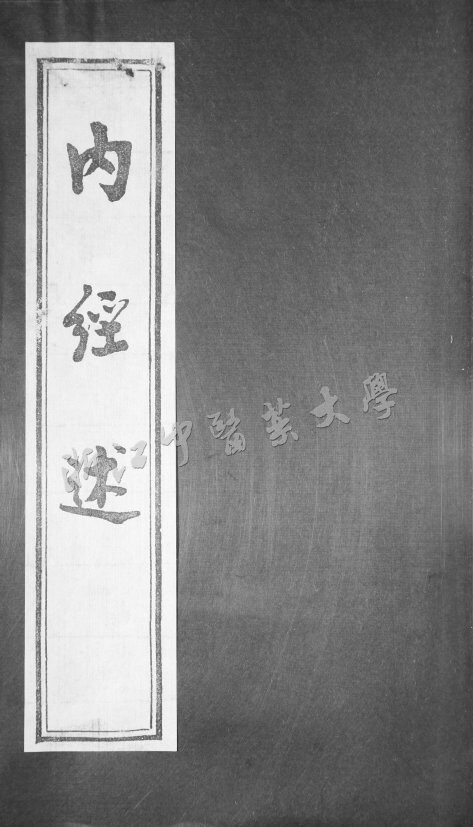 內經述
浙江中醫葯大學